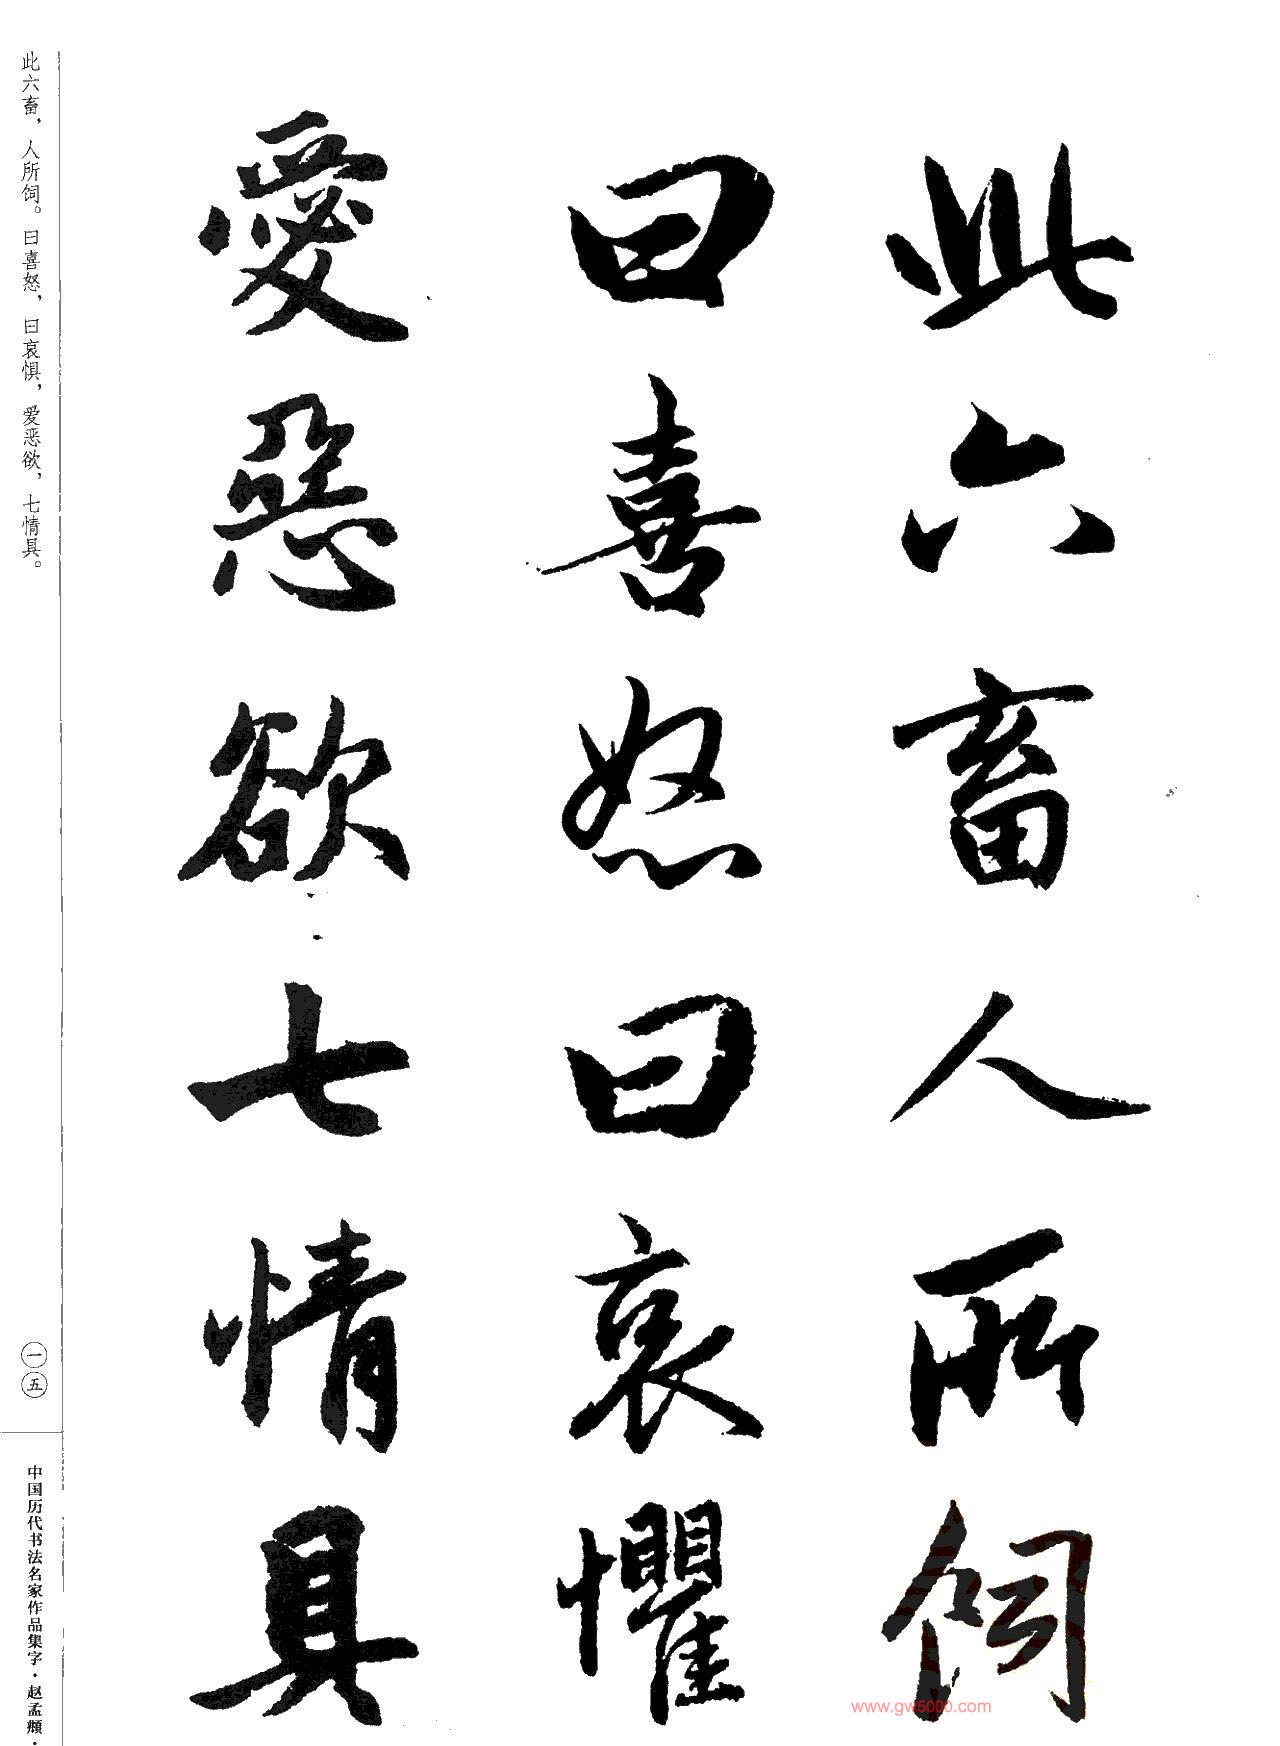 此六畜人所飼
曰喜怒曰哀懼
愛惡欲七情具
此六畜，人所饲。曰喜怒，曰哀惧，爱恶欲，七情具。
一五
中国历代书法名家作品集字·赵孟頫·
www.gw5000.com